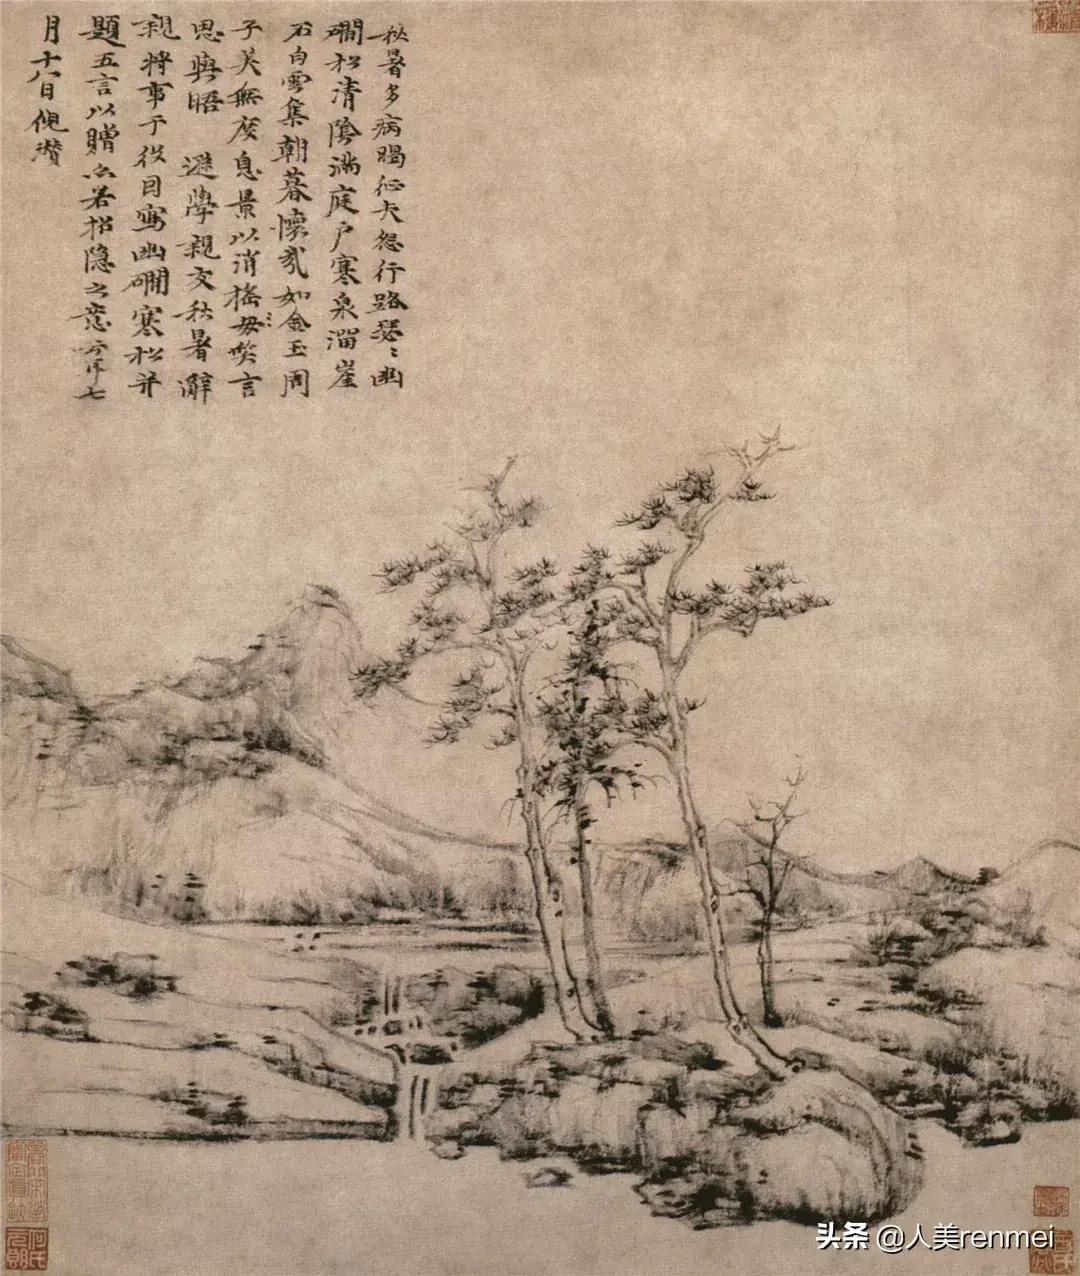 秋暑多病暍征夫怨行路瑟〻幽
磵松清陰滿庭户寒泉溜崖
石白雲集朝暮懷哉如金玉周
子美無度息景以消摇毋笑言
思與晤 遜學親友秋暑辭
親將事于役因寫幽磵寒松并
題五言以贈亦若招隱之意云耳七
月十八日倪瓚
头条 @人美renmei